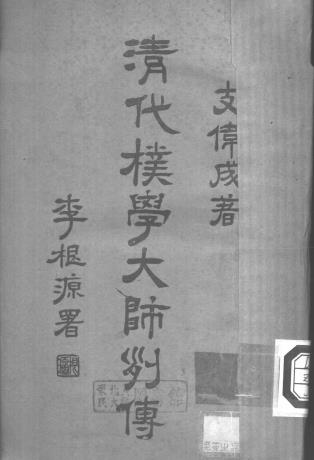 支偉成著
清代樸學大師列傳
李根源署